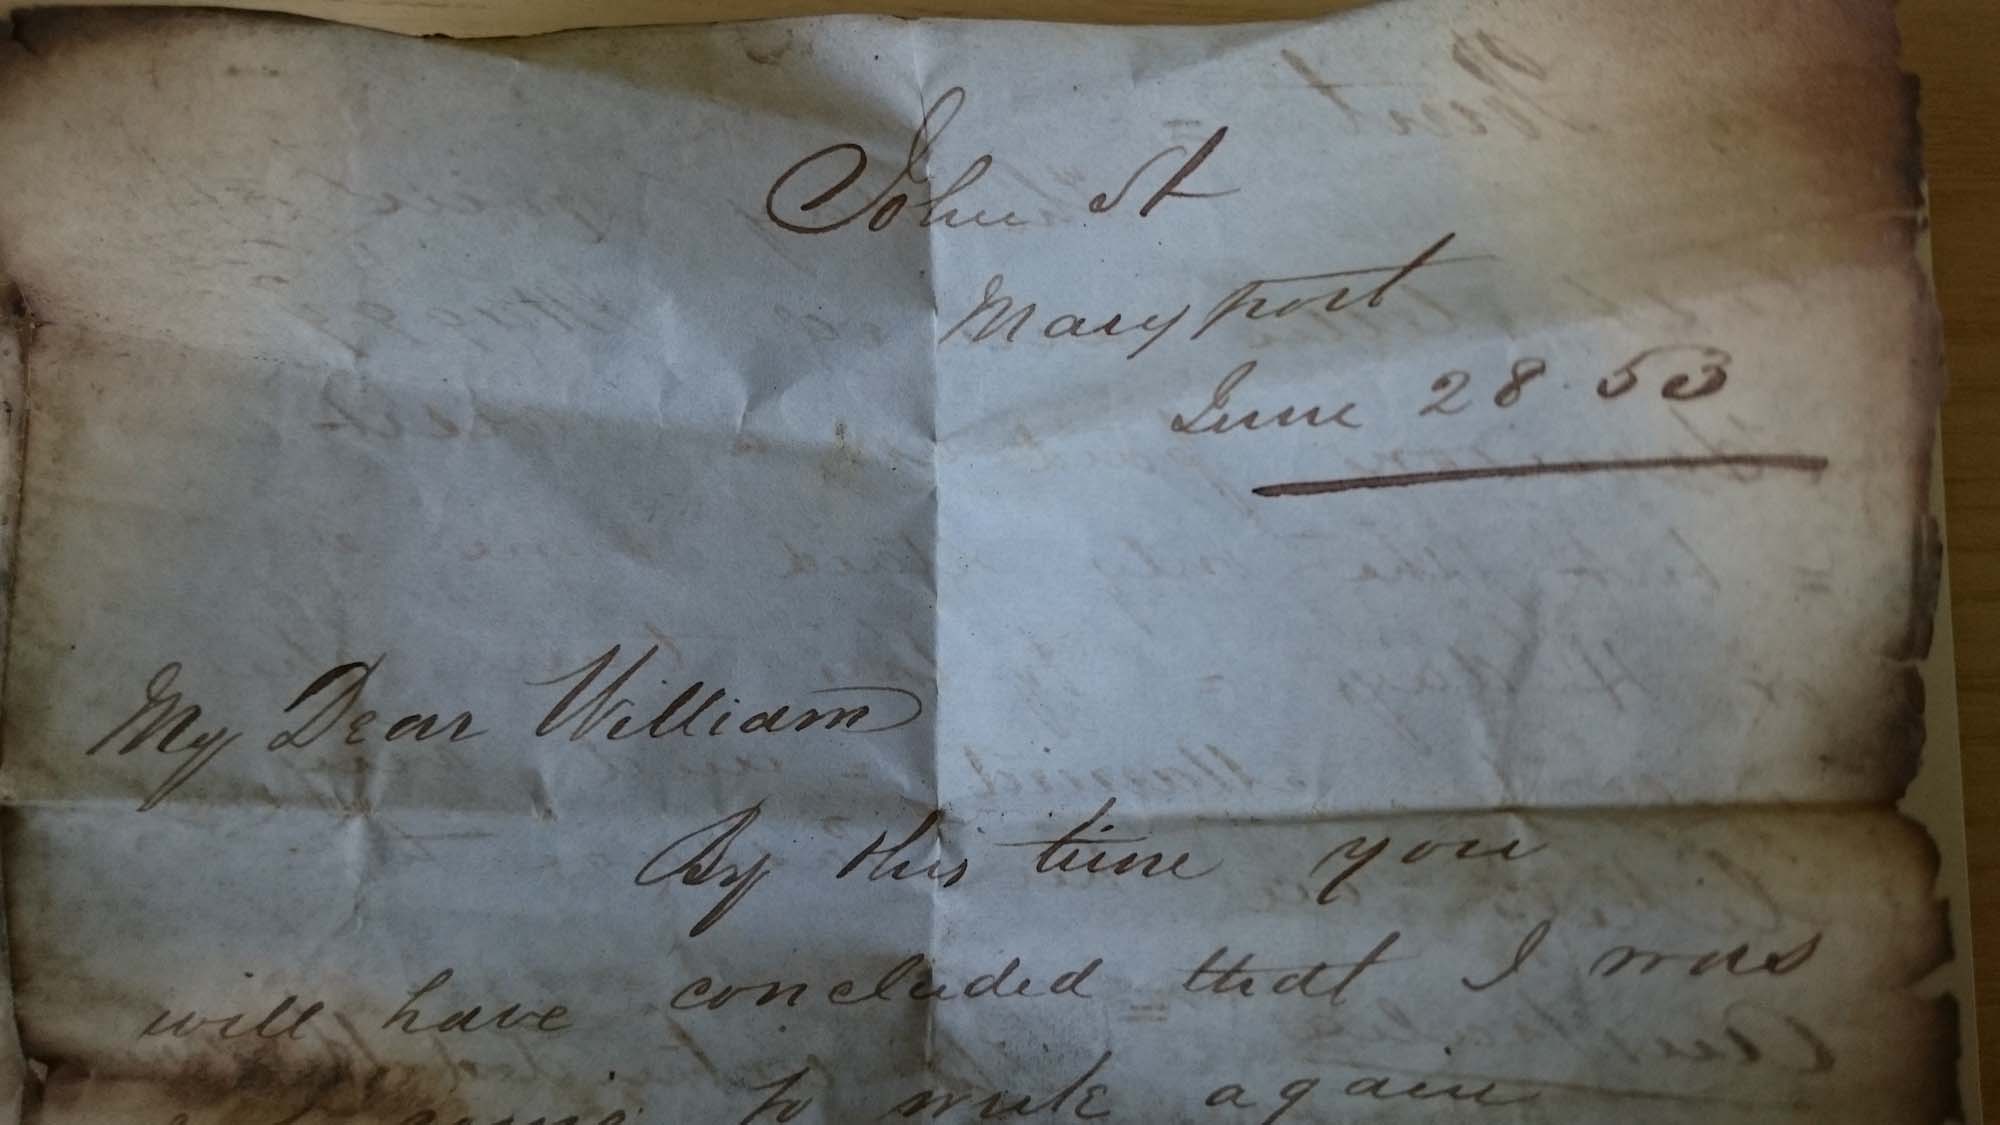 John St
Maryport
June 28. 53
My Dear William
By this time you
will have concluded that I was
going to write again